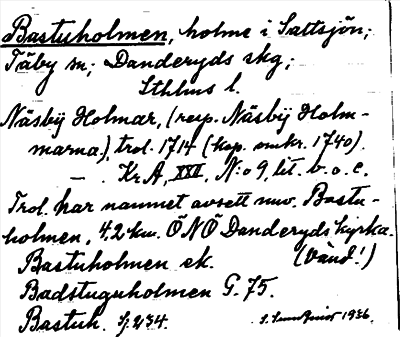 Bastuholmen, holme i Saltsjön;
Täby sn; Danderyds skg;
Sthlms l.
Näsbÿ Holmar, (resp. Näsbÿ Holm-
marna.), trol. 1714 (kop. omkr. 1740).
— . Kr.A, XXI, N:o 9, lit. b. o. c.
Trol. har namnet avsett nuv. Bastu-
holmen, 4,2 km. ÖNÖ Danderyds kyrka.
Bastuholmen ek. (Vänd!)
Badstuguholmen G. 75.
Bastuh. Sj. 234.
1936.